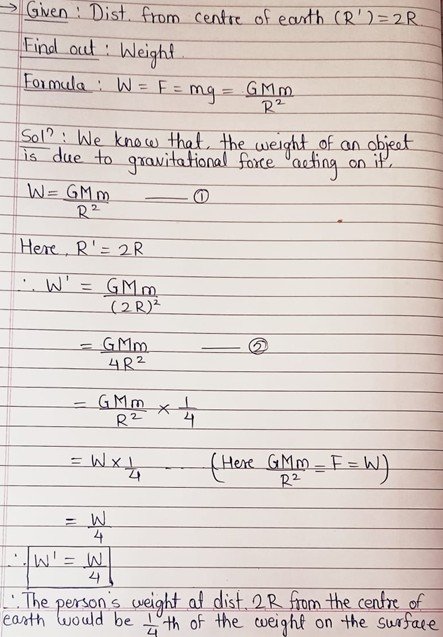 → Given : Dist. from centre of earth (R') = 2R
Find out : Weight.
Formula : W = F = mg = GMm/R²
Solⁿ : We know that, the weight of an object
is due to gravitational force acting on it.
W = GMm/R² —— ①
Here, R' = 2R
∴ W' = GMm/(2R)²
= GMm/4R² —— ②
= GMm/R² × 1/4
= W × 1/4 ... (Here GMm/R² = F = W)
= W/4
∴ W' = W/4
∴ The person's weight at dist. 2R from the centre of
earth would be 1/4 th of the weight on the surface